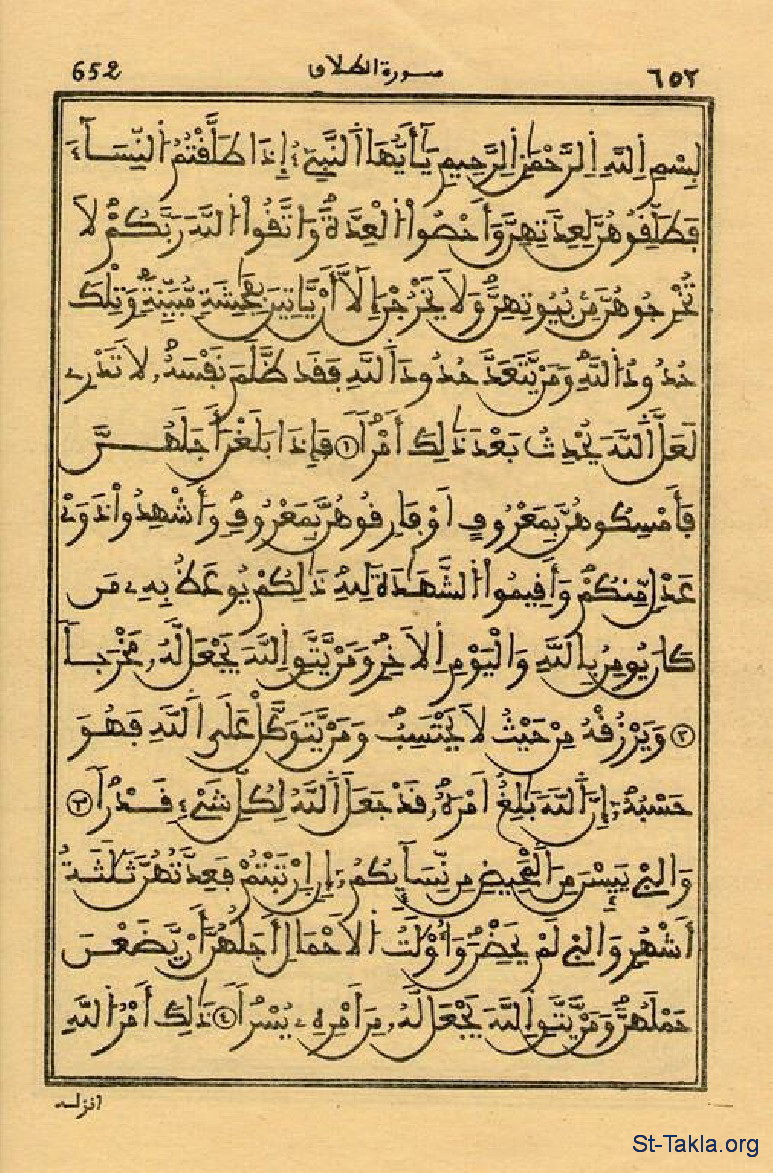 652 سورة الطلاق ٦٥٢
بِسْمِ اِللَّهِ اِلرَّحْمَٰنِ اِلرَّحِيمِ يَٰٓأَيُّهَا اَلنَّبِيٓءُ إِذَا طَلَّقْتُمُ اُلنِّسَآءَ
فَطَلِّقُوهُنَّ لِعِدَّتِهِنَّ وَأَحْصُواْ اُلْعِدَّةَ وَاتَّقُواْ اُللَّهَ رَبَّكُمْ لَا
تُخْرِجُوهُنَّ مِنْ بُيُوتِهِنَّ وَلَا يَخْرُجْنَ إِلَّآ أَنْ يَّاتِينَ بِفَٰحِشَةٍ مُّبَيِّنَةٍ وَتِلْكَ
حُدُودُ اُللَّهِ وَمَنْ يَّتَعَدَّ حُدُودَ اَللَّهِ فَقَد ظَّلَمَ نَفْسَهُۥ لَا تَدْرِے
لَعَلَّ اَللَّهَ يُحْدِثُ بَعْدَ ذَٰلِكَ أَمْراً ١ فَإِذَا بَلَغْنَ أَجَلَهُنَّ
فَأَمْسِكُوهُنَّ بِمَعْرُوفٍ اَوْ فَارِقُوهُنَّ بِمَعْرُوفٍ وَأَشْهِدُواْ ذَوَےْ
عَدْلٍ مِّنكُمْ وَأَقِيمُواْ اُلشَّهَٰدَةَ لِلهِ ذَٰلِكُمْ يُوعَظُ بِهِۦ مَن
كَانَ يُومِنُ بِاللَّهِ وَالْيَوْمِ اِلَاخِرِ وَمَنْ يَّتَّقِ اِللَّهَ يَجْعَل لَّهُۥ مَخْرَجاً
٢ وَيَرْزُقْهُ مِنْ حَيْثُ لَا يَحْتَسِبُ وَمَنْ يَّتَوَكَّلْ عَلَى اَللَّهِ فَهُوَ
حَسْبُهُۥٓ إِنَّ اَللَّهَ بَٰلِغٌ اَمْرَهُۥ قَدْ جَعَلَ اَللَّهُ لِكُلِّ شَےْءٍ قَدْراً ٣
وَالِے يَئِسْنَ مِنَ اَلْمَحِيضِ مِن نِّسَآئِكُمُۥٓ إِنِ اِرْتَبْتُمْ فَعِدَّتُهُنَّ ثَلَٰثَةُ
أَشْهُرٍ وَالِے لَمْ يَحِضْنَ وَأُوْلَٰتُ اُلَاحْمَالِ أَجَلُهُنَّ أَنْ يَّضَعْنَ
حَمْلَهُنَّ وَمَنْ يَّتَّقِ اِللَّهَ يَجْعَل لَّهُۥ مِنَ اَمْرِهِۦ يُسْراً ٤ ذَٰلِكَ أَمْرُ اُللَّهِ
انزله
St-Takla.org